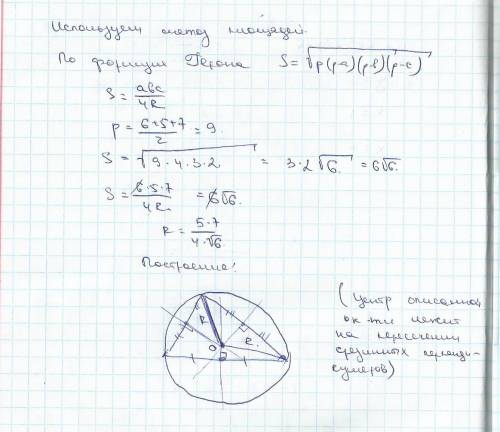 Используем метод площадей.
По формуле Герона S=√p(p-a)(p-b)(p-c)
S = abc/4R
p = 6+5+7/2 = 9.
S = √9·4·3·2 = 3·2√6 = 6√6.
S = 6·5·7/4R = 6√6.
R = 5·7/4·√6.
Построение:
R
R.
O
(Центр описанной
ок-ти лежит
на пересечении
срединных перпенди-
куляров)